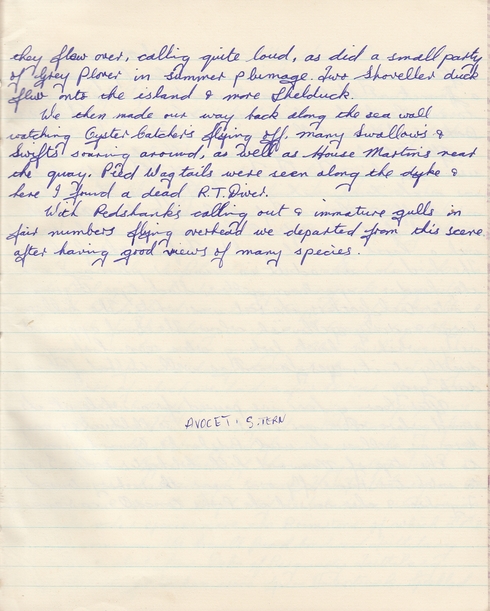 they flew over, calling quite loud, as did a small party
of Grey Plover in summer plumage. Two Shoveller duck
flew onto the island & more Shelduck.
We then made our way back along the sea wall
watching Oyster-Catchers flying off. many Swallows &
Swifts soaring around, as well as House Martins near
the quay. Pied Wagtails were seen along the dyke &
here I found a dead R.T. Diver.
With Redshanks calling out & immature gulls in
fair numbers flying overhead we departed from this scene
after having good views of many species.
AVOCET. S. TERN